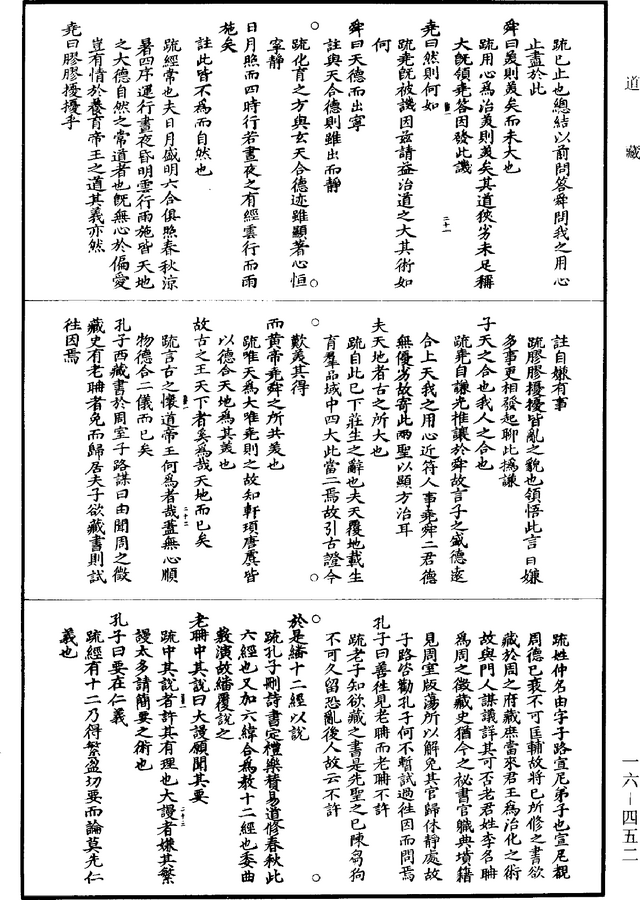 道藏
疏已止也總結以前問答舜問我之用心
止盡於此
舜曰美則美矣而未大也
疏用心為治美則美矣其道狹劣未足稱
大旣領堯答因發此譏
堯曰然則何如
疏堯旣被譏因茲請益治道之大其術如
何
舜曰天德而出寧
註與天合德則雖出而靜
疏化育之方與玄天合德迹雖顯著心恒
寧靜
日月照而四時行若晝夜之有經雲行而雨
施矣
註此皆不為而自然也
疏經常也夫日月盛明六合俱照春秋涼
暑四序運行晝夜昏明雲行雨施皆天地
之大德自然之常道者也旣無心於偏愛
豈有情於養育帝王之道其義亦然
堯曰膠膠擾擾乎
二十一
註自嫌有事
疏膠膠擾擾皆亂之貌也領悟此言日嫌
多事更相發起聊此撝謙
子天之合也我人之合也
疏堯自謙光推讓於舜故言子之盛德遠
合上天我之用心近符人事堯舜二君德
無優劣故寄此兩聖以顯方治耳
夫天地者古之所大也
疏自此已下莊生之辭也夫天覆地載生
育羣品域中四大此當二焉故引古證今
歎美其得
而黃帝堯舜之所共美也
疏唯天為大唯堯則之故知軒頊唐虞皆
以德合天地為其美也
故古之王天下者奚為哉天地而已矣
疏言古之懷道帝王何為者哉蓋無心順
物德合二儀而已矣
孔子西藏書於周室子路謀曰由聞周之徵
藏史有老聃者免而歸居夫子欲藏書則試
往因焉
二十二
疏姓仲名由字子路宣尼弟子也宣尼覩
周德已衰不可匡輔故將已所修之書欲
藏於周之府藏庶當來君王為治化之術
故與門人謀議詳其可否老君姓李名聃
為周之徵藏史猶今之祕書官職典墳籍
見周室版蕩所以解免其官歸休靜處故
子路咨勸孔子何不暫試過往因而問焉
孔子曰善往見老聃而老聃不許
疏老子知欲藏之書是先聖之已陳芻狗
不可久留恐亂後人故云不許
於是繙十二經以說
疏孔子刪詩書定禮樂贊易道修春秋此
六經也又加六緯合為敎十二經也委曲
敷演故繙覆說之
老聃中其說曰大謾願聞其要
疏中其說者許其有理也大謾者嫌其繁
謾太多請簡要之術也
孔子曰要在仁義
疏經有十二乃得繁盈切要而論莫先仁
義也
二十三
一六—四五二